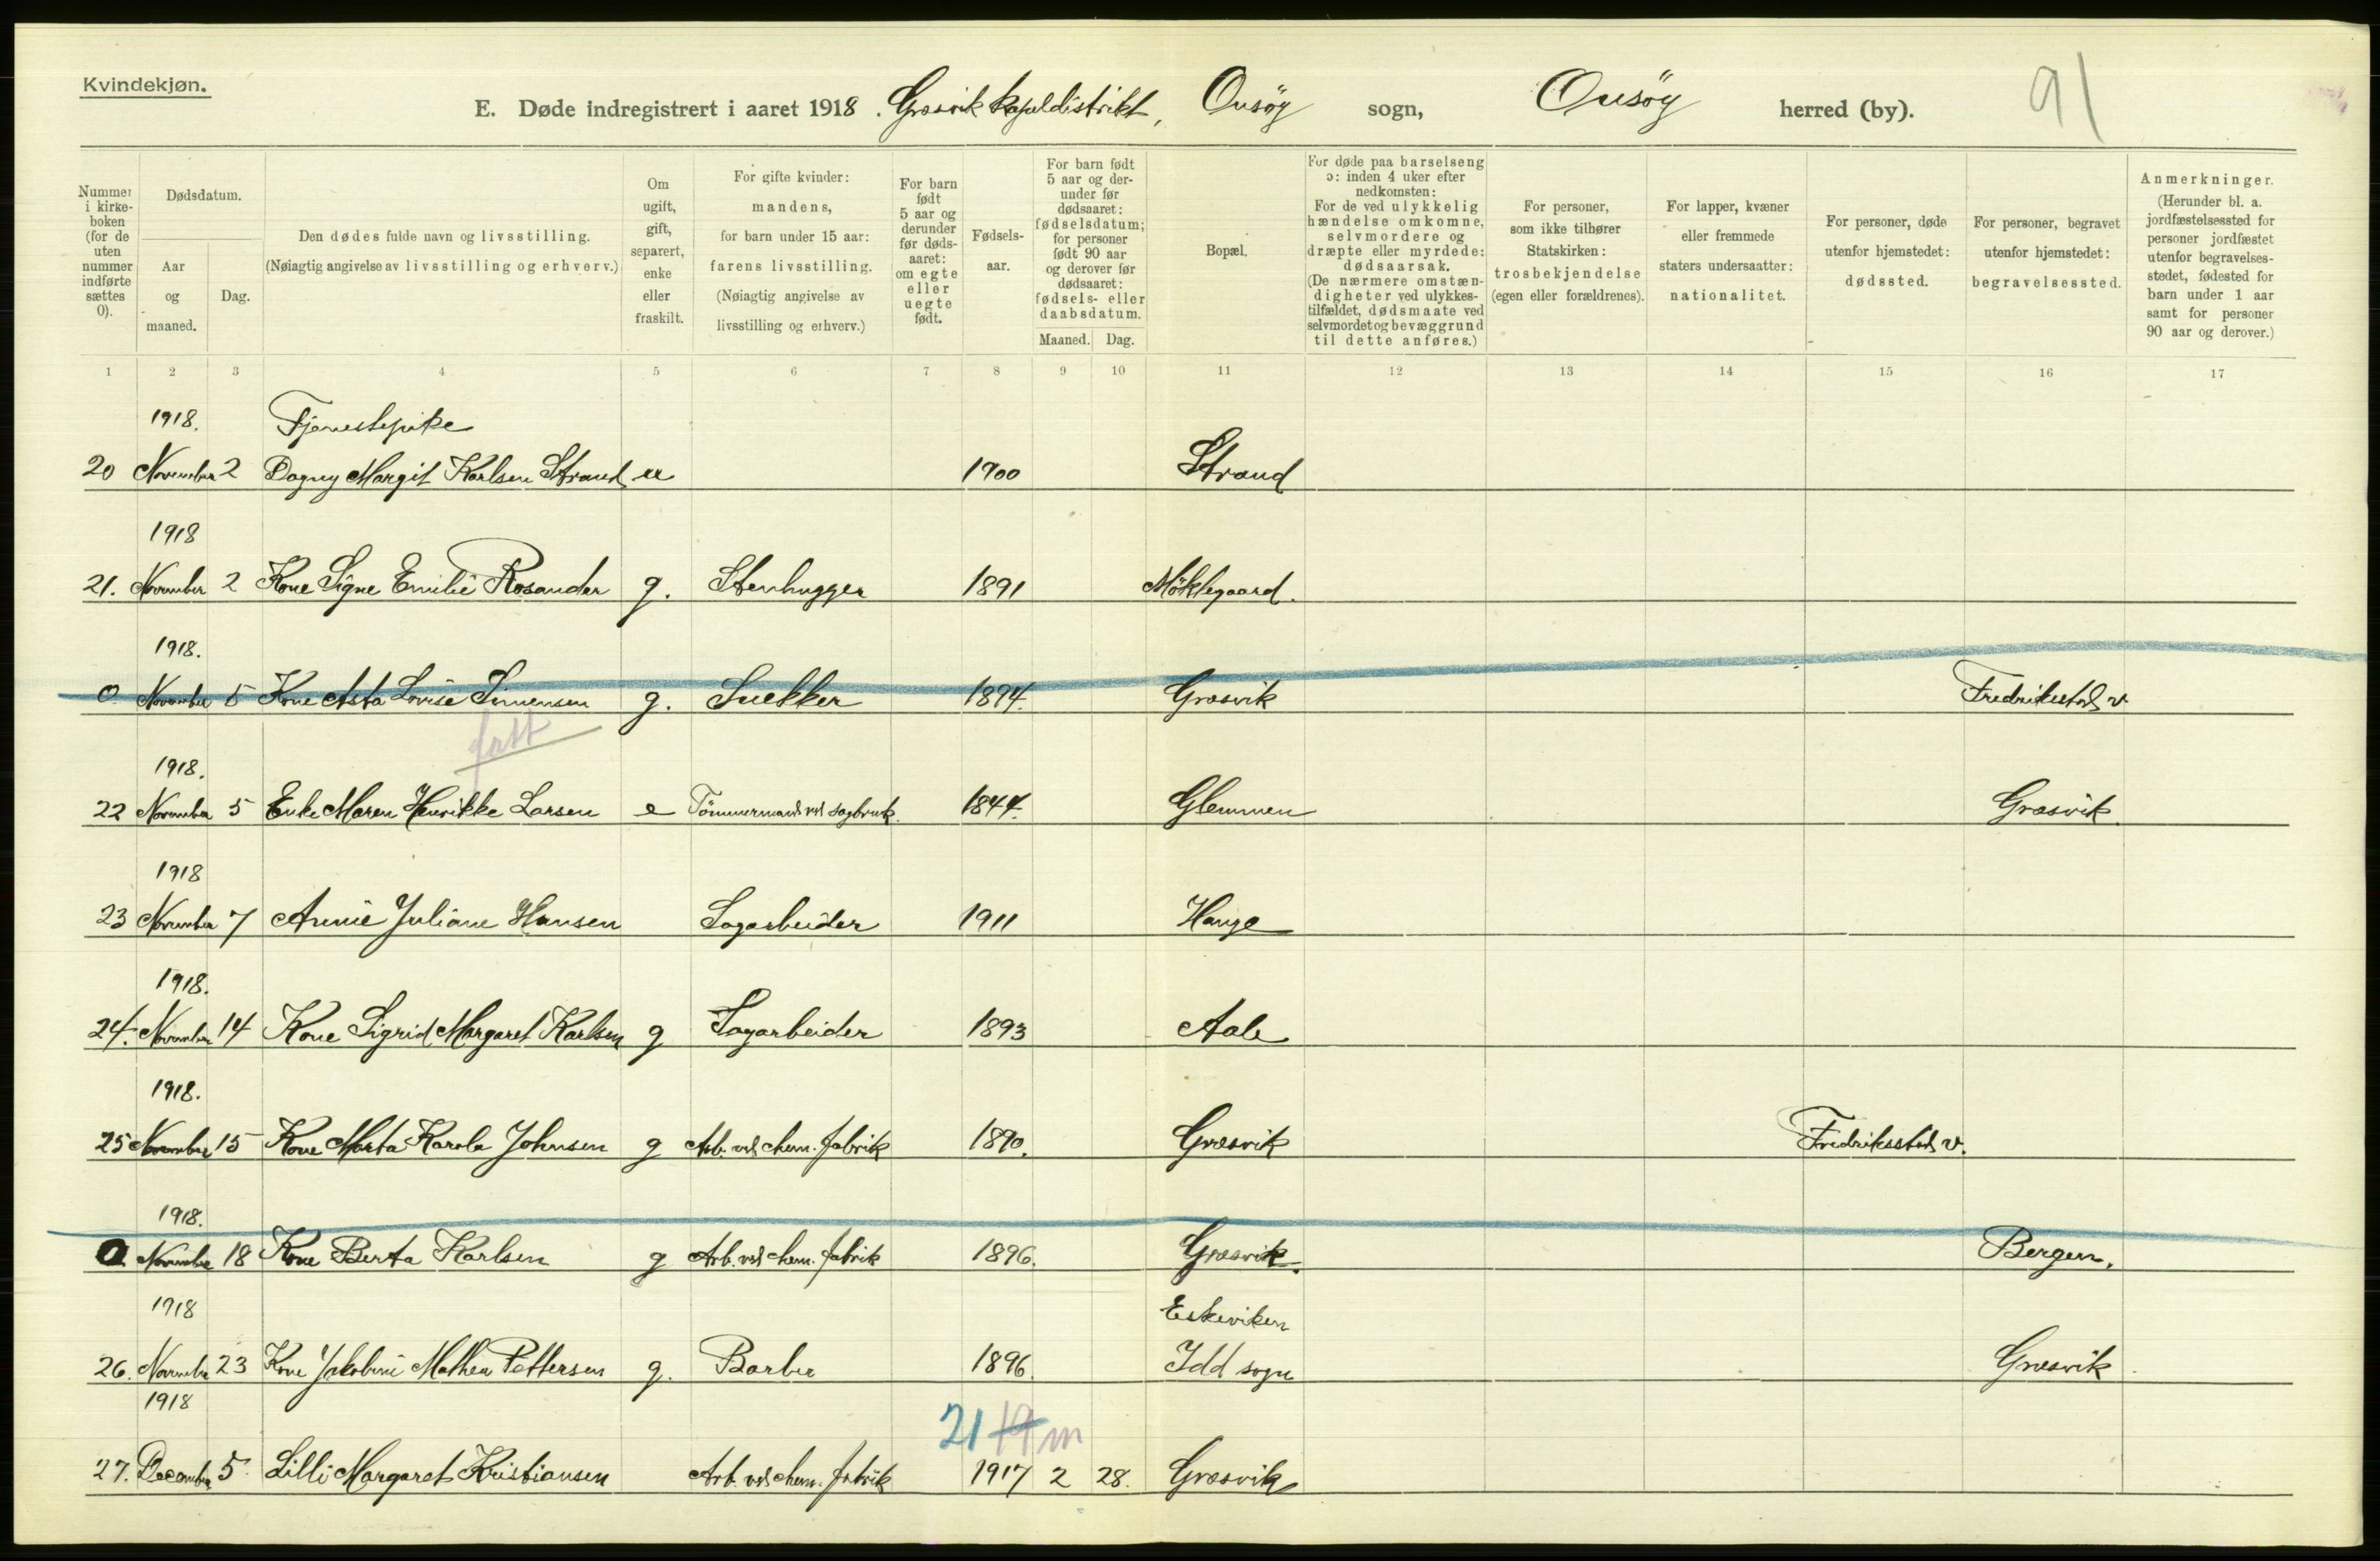 Kvindekjøn.
E. Døde indregistrert i aaret 1918. Græsvik kapeldistrikt, Onsöy sogn, Onsöy herred (by). 91
Nummer i kirkeboken (for de uten nummer indførte sættes 0).
Dødsdatum.
Aar og maaned.
Dag.
Den dødes fulde navn og livsstilling.
(Nøiagtig angivelse av livsstilling og erhverv.)
Om ugift, gift, separert, enke eller fraskilt.
For gifte kvinder: mandens, for barn under 15 aar: farens livsstilling. (Nøiagtig angivelse av livsstilling og erhverv.)
For barn født 5 aar og derunder før dødsaaret: om egte eller uegte født.
Fødselsaar.
For barn født 5 aar og derunder før dødsaaret: fødselsdatum; for personer født 90 aar og derover før dødsaaret: fødsels- eller daabsdatum.
Maaned. Dag.
Bopæl.
For døde paa barselseng ɔ: inden 4 uker efter nedkomsten: For de ved ulykkelig hændelse omkomne, selvmordere og dræpte eller myrdede: dødsaarsak. (De nærmere omstændigheter ved ulykkestilfældet, dødsmaate ved selvmordet og bevæggrund til dette anføres.)
For personer, som ikke tilhører Statskirken: trosbekjendelse (egen eller forældrenes).
For lapper, kvæner eller fremmede staters undersaatter: nationalitet.
For personer, døde utenfor hjemstedet: dødssted.
For personer, begravet utenfor hjemstedet: begravelsessted.
Anmerkninger. (Herunder bl. a. jordfæstelsessted for personer jordfæstet utenfor begravelsesstedet, fødested for barn under 1 aar samt for personer 90 aar og derover.)
1 2 3 4 5 6 7 8 9 10 11 12 13 14 15 16 17
1918. Tjenestepike
20 November 2 Dagny Margit Karlsen Strand u 1900 Strand
1918
21. November 2 Kone Signe Emilie Rosander g. Stenhugger 1891 Möklegaard.
1918.
0 November 5 Kone Asta Lovise Simensen g. Snekker 1894. Græsvik Fredrikstad v.
1918.
22 November 5 Enke Maren Henrikke Larsen e Tömmermand ved sagbruk. 1844. Glemmen Græsvik.
1918
23 November 7 Annie Juliane Hansen Sagarbeider 1911 Hauge
1918.
24. November 14 Kone Sigrid Margaret Karlsen g Sagarbeider 1893 Aale
1918.
25 November 15 Kone Marta Karola Johnsen g Arb. ved chem. fabrik 1890. Græsvik Fredriksstad v.
1918.
0 November 18 Kone Berta Karlsen g Arb. ved chem. fabrik 1896. Græsvik. Bergen.
1918 Eskeviken
26. November 23 Kone Jakobine Mathea Pettersen g. Barber 1896. Idd sogn Græsvik
1918
21 19 m
27. December 5. Lilli Margaret Kristiansen Arb. ved chem. fabrik 1917 2 28. Græsvik